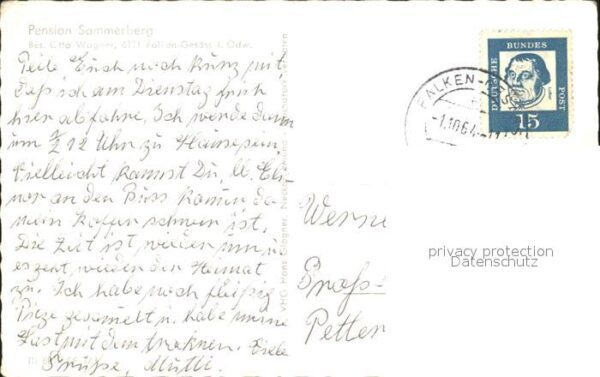 Pension Sommerberg
Bes. Otto Wagner, 6101 Falken-Gesäss i. Odw.
Teile Euch noch kurz mit
daß ich am Dienstag früh
hier abfahre. Ich werde dann
um 1/2 12 Uhr zu Hause sein,
Vielleicht kannst Du, lb. Eli-
nor an den Buss kommen da
mein Koffer schwer ist.
Die Zeit ist wieder um u.
es geht wieder der Heimat
zu. Ich habe noch fleißig
Pilze gesammelt u. habe meine
Last mit dem trocknen. Viele
Grüße, Mutti.
VHG Hans Glogner, Neckar
DEUTSCHE
BUNDES
POST
15
FALKEN-GES
-1.10.64
Werne
Groß-
Petter
privacy protection
Datenschutz